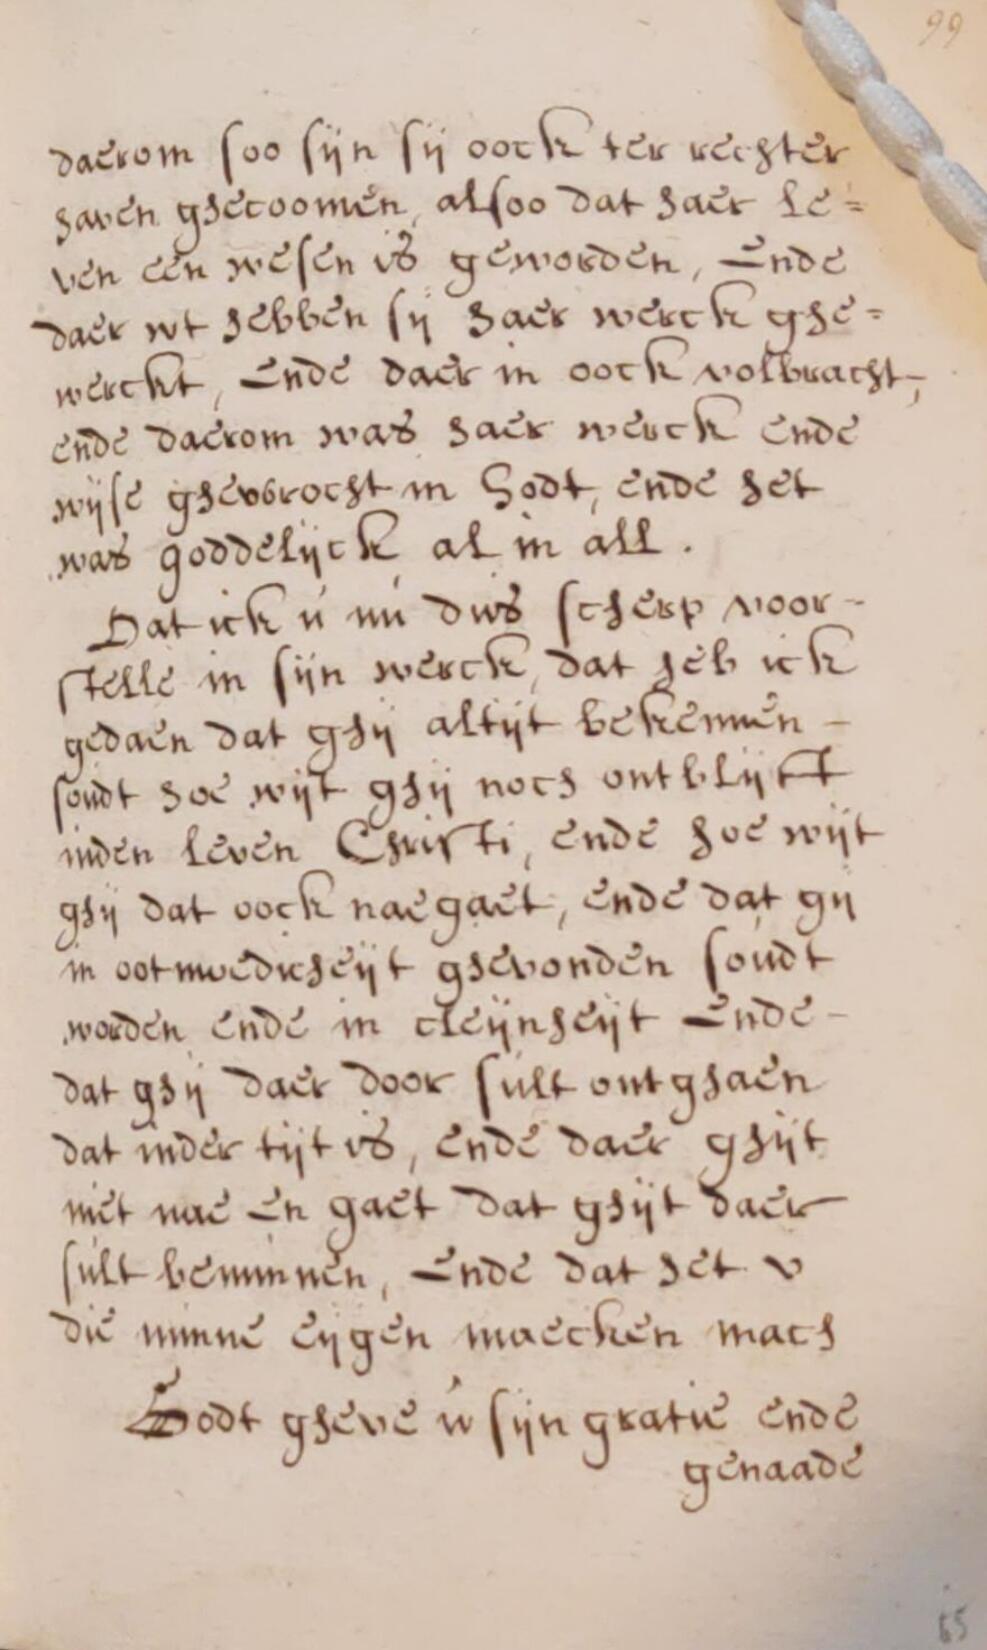 99
daerom soo sijn sij oock ter rechter
haven ghecoomen, alsoo dat haer le=
ven een wesen is geworden, Ende
daer wt hebben sij haer werck ghe=
werckt, Ende daer in oock volbracht,
ende daerom was haer werck ende
wijse ghevrocht in Godt, ende het
was goddelijck al in all.
Dat ick ú nú dus scherp voor-
stelle in sijn werck, dat heb ick
gedaen dat ghij altijt bekennen -
soudt hoe wijt ghij noch ontblijft
inden leven Christi, ende hoe wijt
ghij dat oock nae gaet, ende dat gij
in ootmoedicheijt ghevonden soudt
worden ende in cleijnheijt Ende -
dat ghij daer door sult ontghaen
dat inder tijt is, ende daer ghijt
niet nae en gaet dat ghijt daer
sult beminnen, Ende dat het v
die minne eijgen maecken mach
Godt gheve ú sijn gratie ende
genaade
65